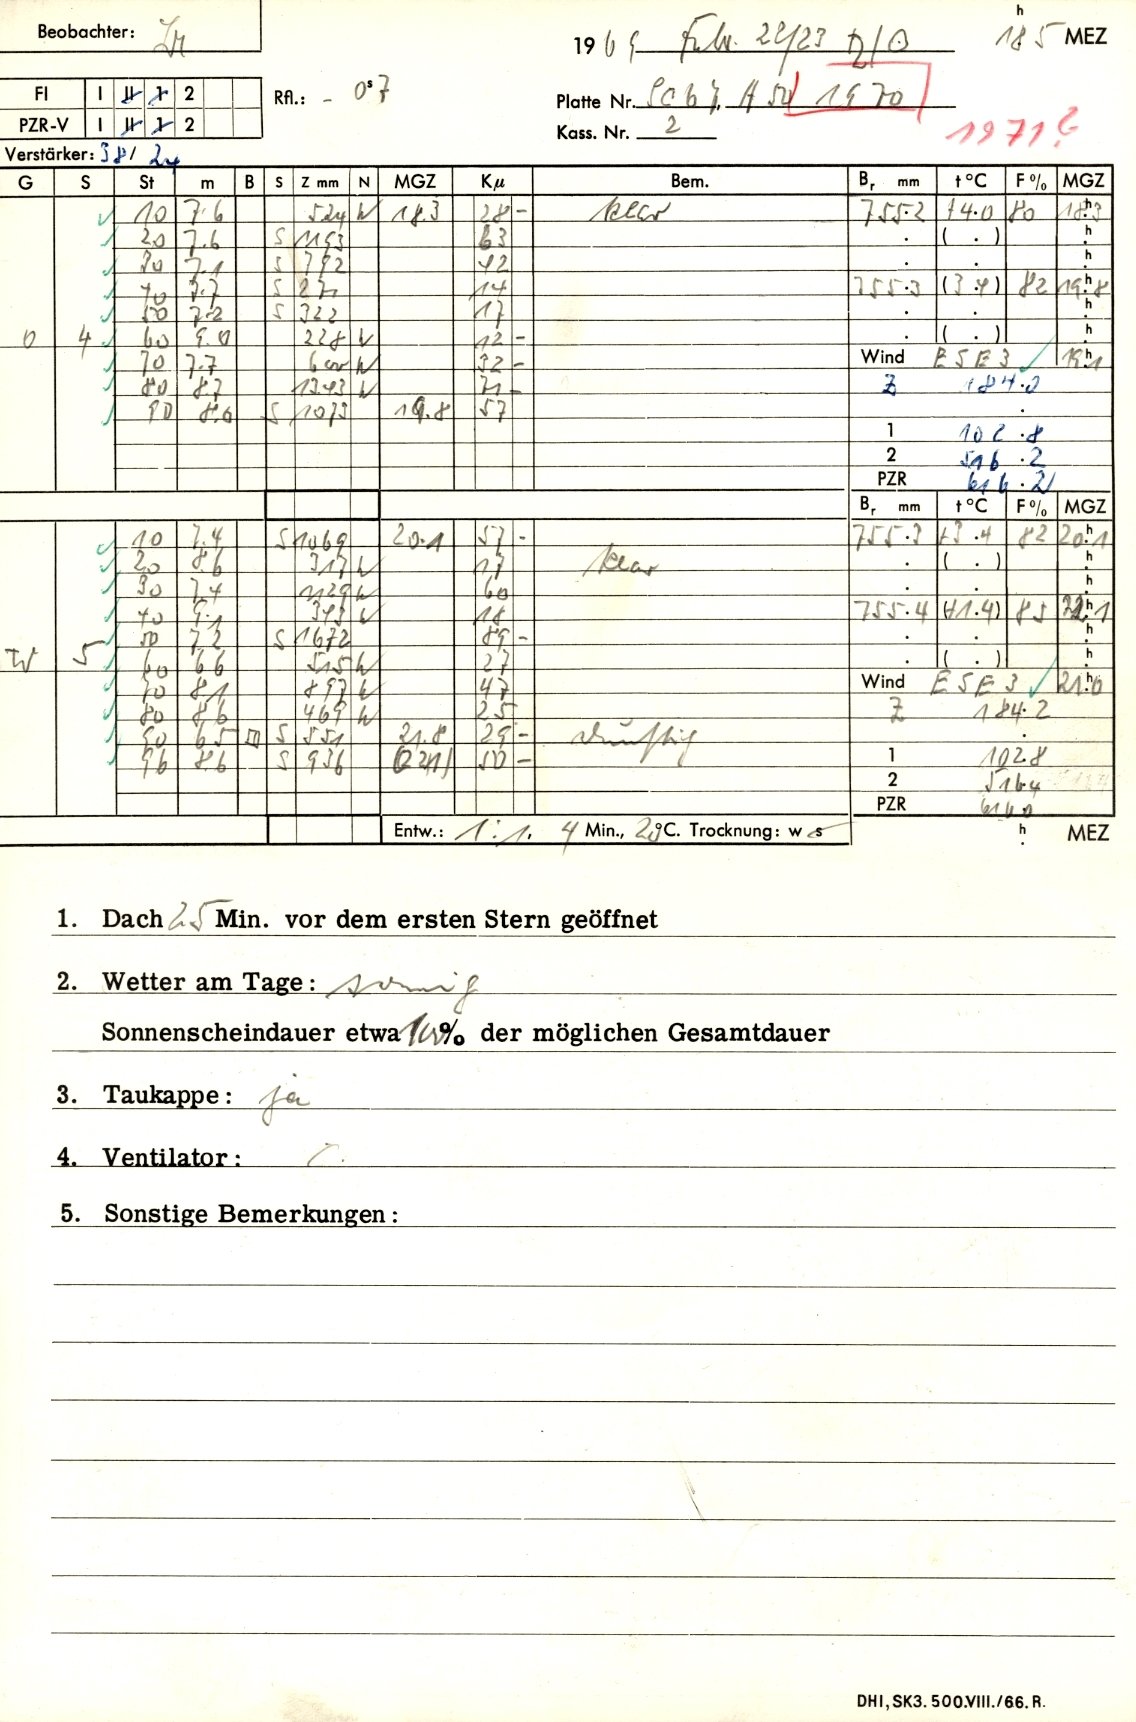 Beobachter:
1969 Febr. 22/23
18 5 MEZ
FI I II 1 2
PZR-V I II 1 2
Rfl.: - 0s7
Platte Nr. 1970
Kass. Nr. 2
1971?
Verstärker: 38/24
G S St m B S Z mm N MGZ Kμ Bem. Br mm t°C F% MGZ
10 7.6 524 N 18.3 28 - klar 755.2 +4.0 80 18.3
20 7.6 S 1193 63
30 7.1 S 792 42
40 7.7 S 271 14 755.3 (3.4) 82 19.8
50 7.2 S 322 17
0 4 60 9.0 228 N 12 -
70 7.7 600 N 32 - Wind ESE 3 19.1
80 8.7 1343 N 71 - Z 184.2
90 8.6 S 1073 19.8 57
1 102.8
2 516.2
PZR 616.2
Br mm t°C F% MGZ
10 7.4 S 1069 20.1 57 - 755.3 +3.4 82 20.1
20 8.6 317 N 17 klar
30 7.4 1129 N 60
40 9.1 343 N 18 755.4 (+1.4) 85 22.1
50 7.2 S 1672 89 -
IV 5 60 6.6 515 N 27
70 8.1 897 N 47 Wind ESE 3 21.0
80 8.6 469 N 25 Z 184.2
90 6.5 S 551 21.8 29 - dunstig
96 8.6 S 936 (22.1) 50 - 1 102.8
2 516.4
PZR 616.0
Entw.: 1:1, 4 Min., 20°C. Trocknung: w s
h MEZ
1. Dach 25 Min. vor dem ersten Stern geöffnet
2. Wetter am Tage: sonnig
Sonnenscheindauer etwa 100% der möglichen Gesamtdauer
3. Taukappe: ja
4. Ventilator:
5. Sonstige Bemerkungen:
DHI, SK3. 500.VIII./66. R.